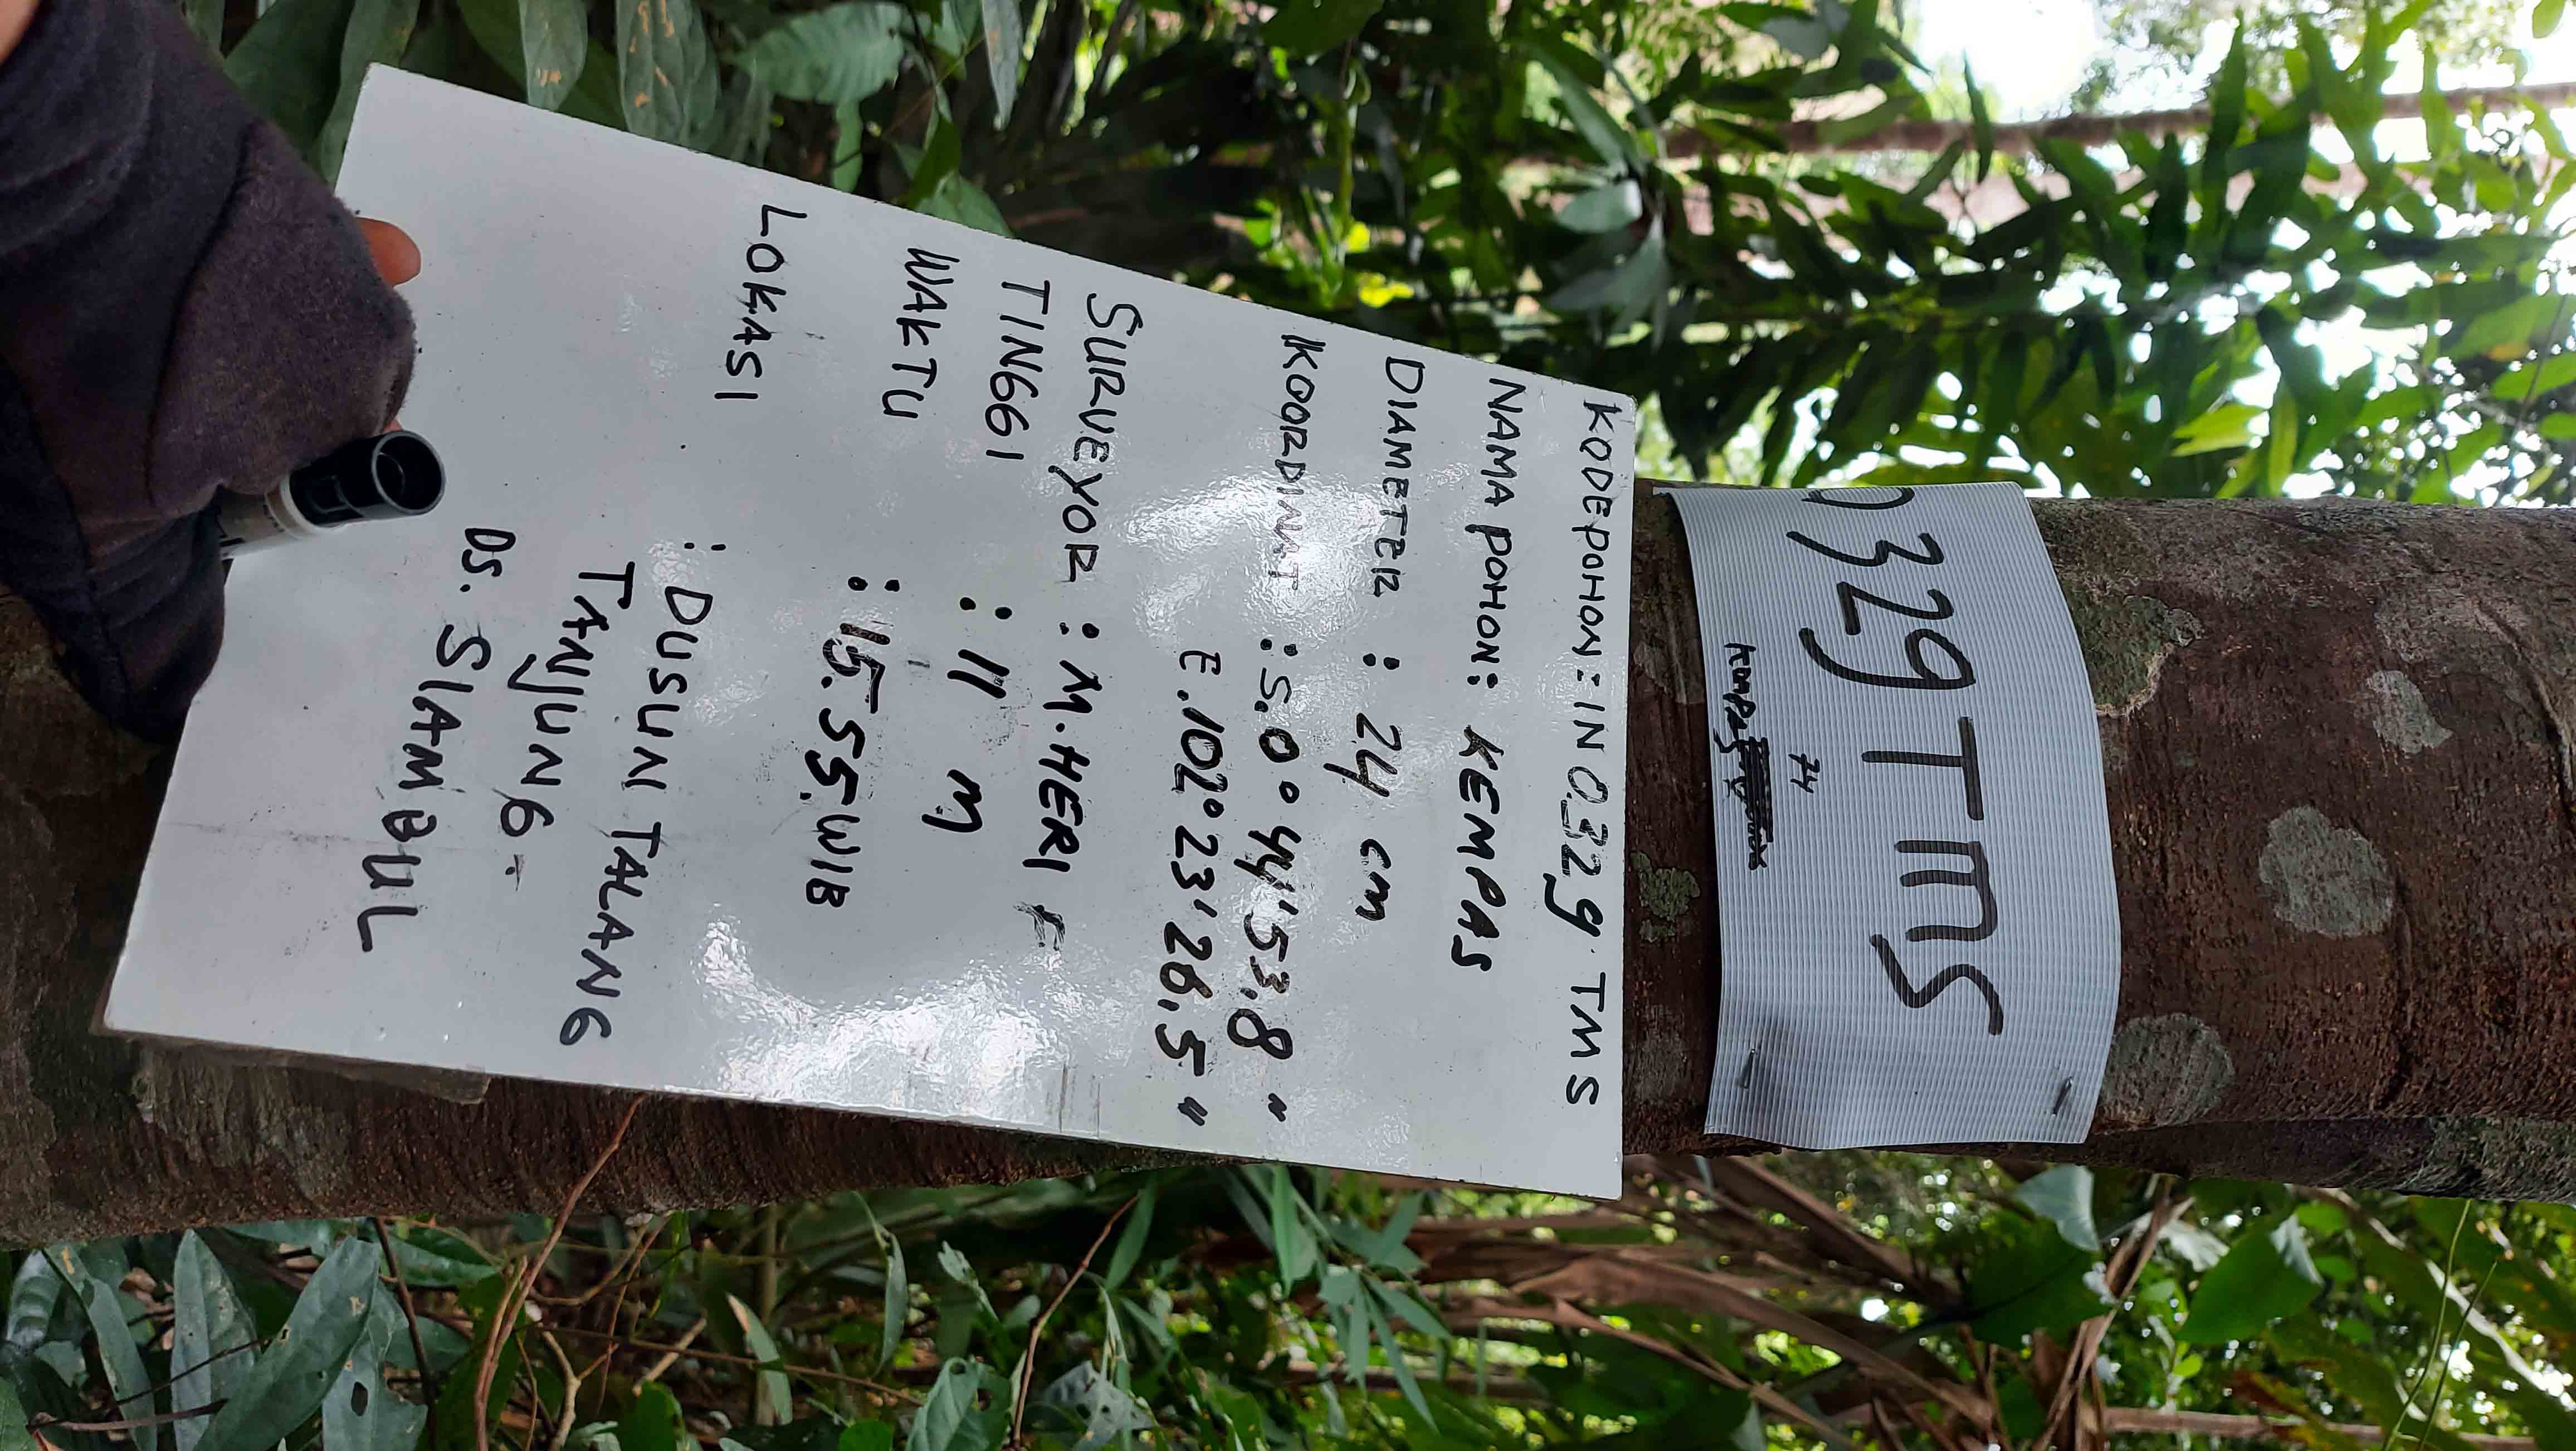 0329 TMS
74
KEMPAS
KODE POHON : IN 0329 TMS
NAMA POHON : KEMPAS
DIAMETER : 24 cm
KOORDINAT : S. 0° 44' 53,8 "
E. 102° 23' 26,5 "
SURVEYOR : M. HERI F
TINGGI : 11 M
WAKTU : 15.55. WIB
LOKASI : DUSUN TALANG
TANJUNG -
DS. SIAMBUL